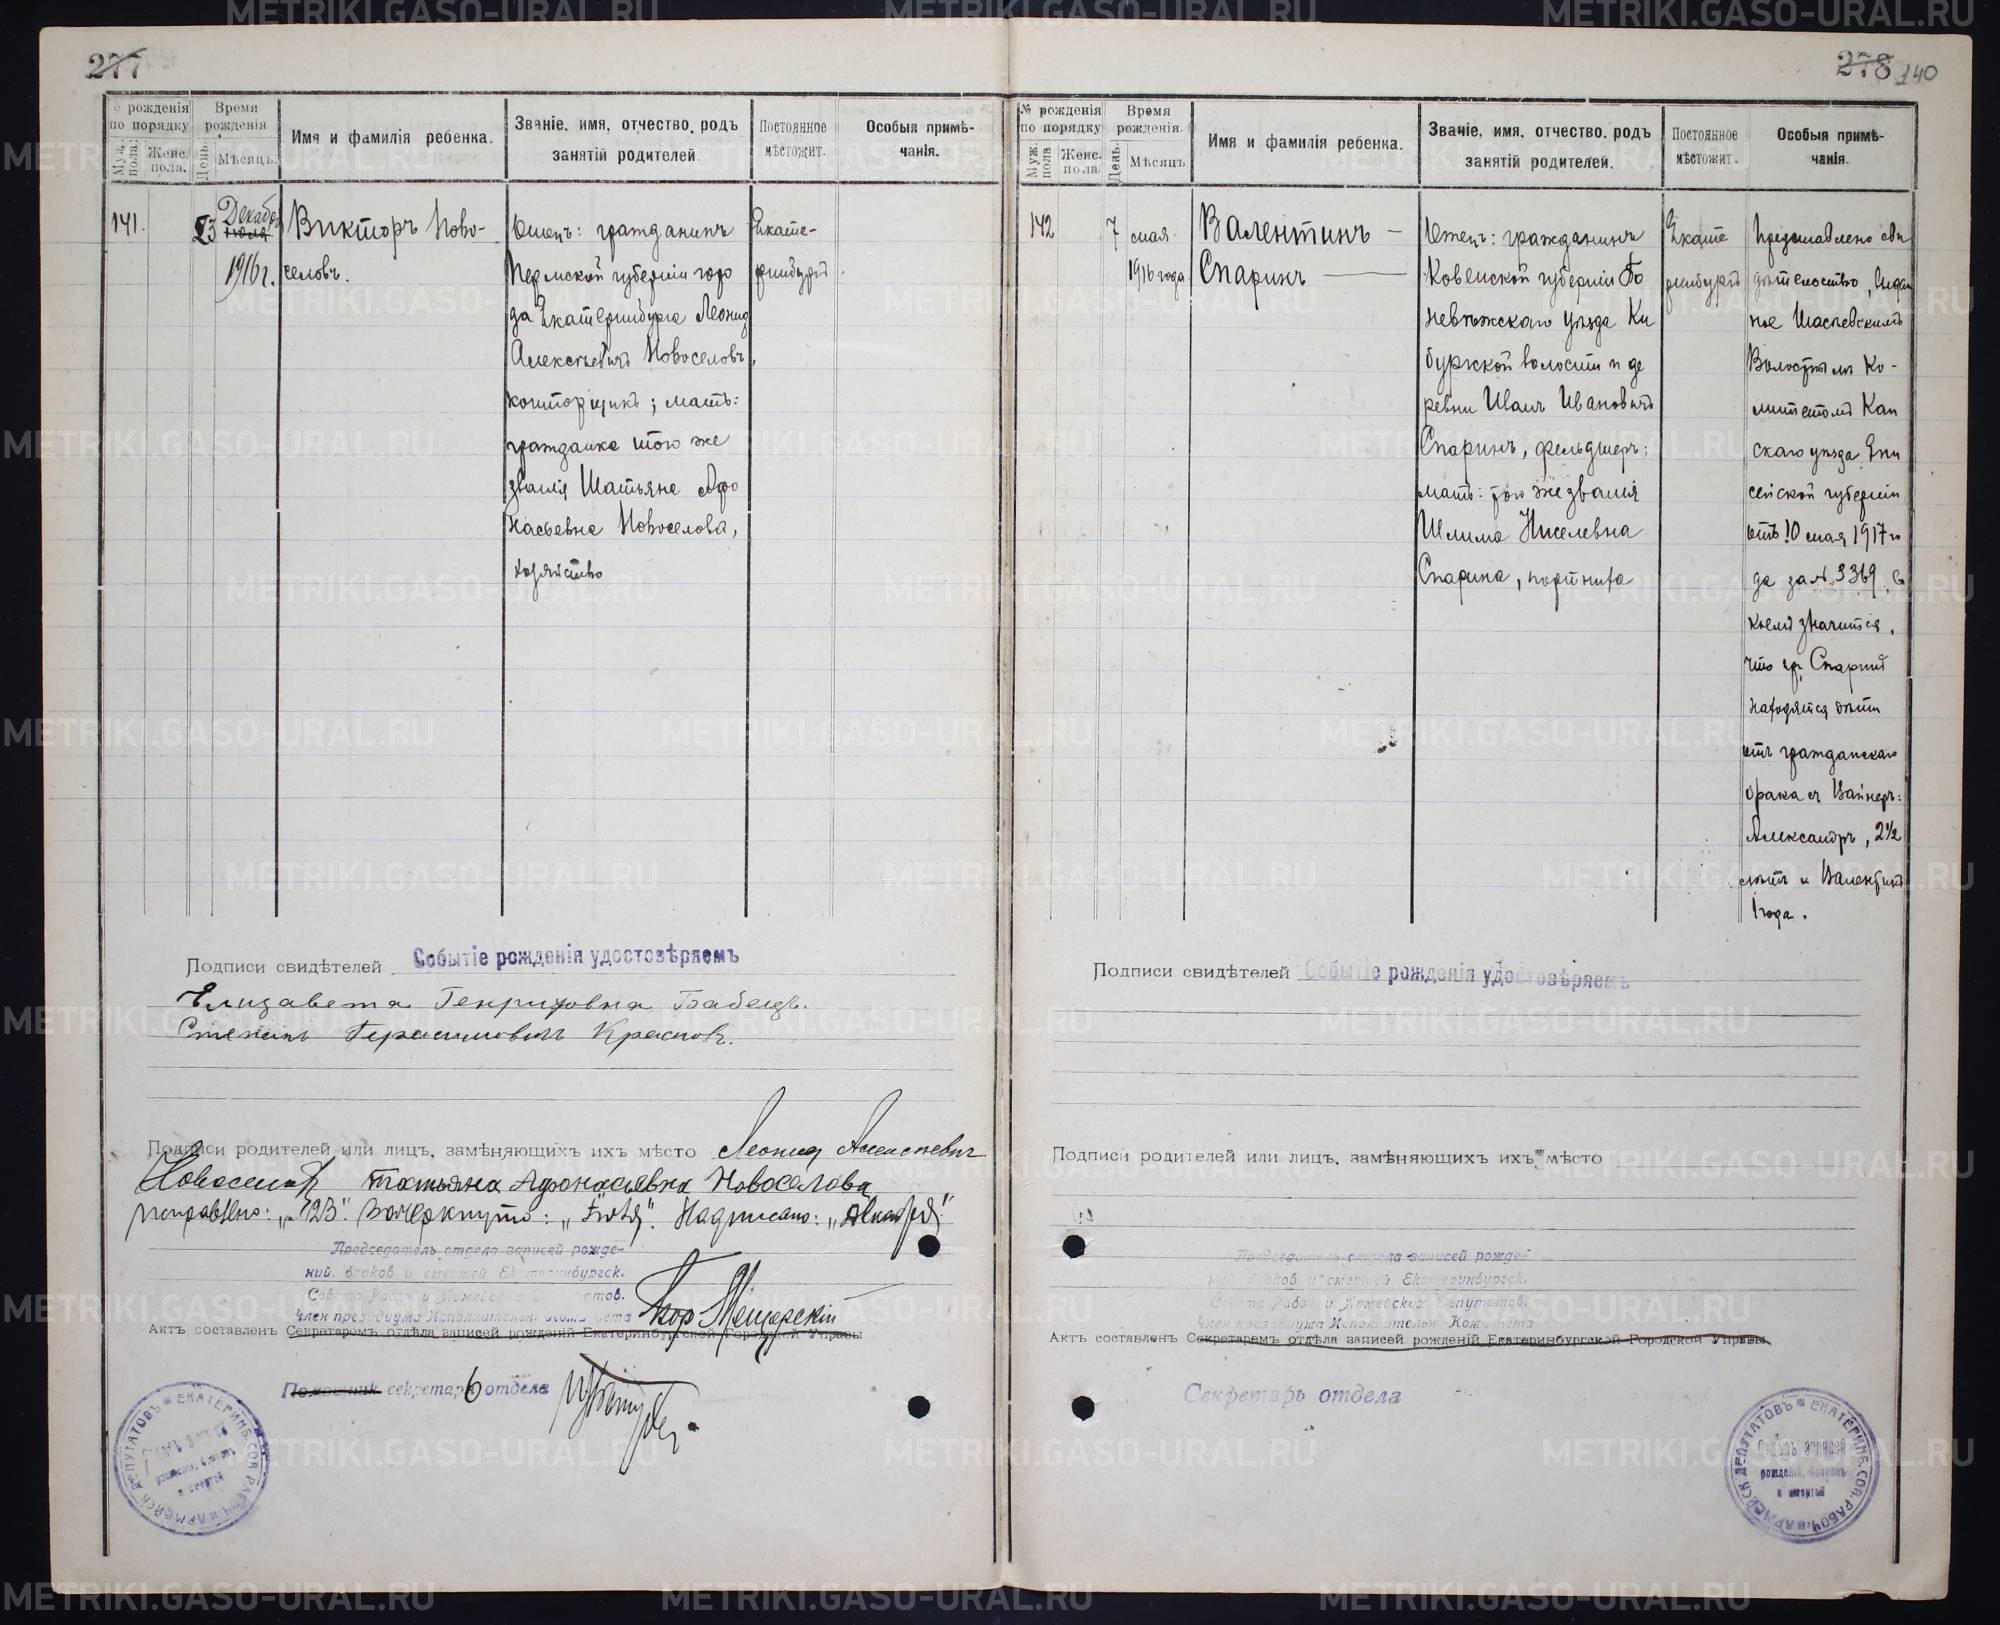 277
№ рожденія по порядку
Муж. пола.
Женс. пола.
Время рожденія
День.
Мѣсяцъ.
Имя и фамилія ребенка.
Званіе, имя, отчество, родъ занятій родителей.
Постоянное мѣстожит.
Особыя примѣчанія.
141.
23
Декабр
Іюля
1916 г.
Викторъ Ново-
селовъ.
Отецъ: гражданинъ
Пермской губерніи горо
да Екатеринбурга Леонид
Алексѣевичъ Новоселовъ,
конторщикъ; мать:
гражданка того же
званія Татьяна Афо
насьевна Новоселова,
хозяйство
Екате-
ринбургъ
Подписи свидѣтелей Событіе рожденія удостовѣряемъ
Елизавета Генриховна Бабецъ.
Степанъ Герасимовичъ Красновъ.
Подписи родителей или лицъ, замѣняющихъ ихъ мѣсто Леонид Алексѣевич
Новоселов Татьяна Афонасьевна Новоселова
исправлено: „23". Зачеркнуто: „Іюля". Надписано: „Декабря"
Председатель отдела записей рожде-
ний, браков и смертей Екатеринбургск.
Совета Рабоч. и Армейских Депутатов.
Член президиума Исполнительн. Комитета
Мещерский
Актъ составленъ Секретаремъ отдѣла записей рожденій Екатеринбургской Городской Управы
Помощник секретаря отдела
ЕКАТЕРИНБ. СОВ. РАБОЧ. и АРМЕЙСК. ДЕПУТАТОВЪ
рожденій, браковъ
и смертей
278
140
№ рожденія по порядку
Муж. пола
Женс. пола.
Время рожденія.
День.
Мѣсяцъ
Имя и фамилія ребенка.
Званіе, имя, отчество, родъ занятій родителей.
Постоянное мѣстожит.
Особыя примѣчанія.
142
7
мая
1916 года
Валентинъ –
Спаринъ –
Отецъ: гражданинъ
Ковенской губерніи По
невѣжскаго уѣзда Ки
буржской волости и де
ревни Иванъ Ивановичъ
Спаринъ, фельдшеръ;
мать: того же званія
Шлима Киселевна
Спарина, портниха
Екате
ринбургъ
Предоставлено сви
дѣтельство, выдан
ное Шаспевскимъ
Волостнымъ Ко-
митетомъ Кан
скаго уѣзда Ени
сейской губерніи
отъ 10 мая 1917 го
да за № 3369, въ
коемъ значится,
что гр. Спаринъ
находятся дѣти
отъ гражданскаго
брака съ Вайнеръ:
Александръ, 2½
лѣтъ и Валентинъ
1 года.
Подписи свидѣтелей Событіе рожденія удостовѣряемъ
Подписи родителей или лицъ, замѣняющихъ ихъ мѣсто
Председатель отдела записей рожде-
ний, браков и смертей Екатеринбургск.
Совета Рабоч. и Армейских Депутатов.
Член президиума Исполнительн. Комитета
Актъ составленъ Секретаремъ отдѣла записей рожденій Екатеринбургской Городской Управы
Секретарь отдела
ЕКАТЕРИНБ. СОВ. РАБОЧ. и АРМЕЙСК. ДЕПУТАТОВЪ
Отдѣлъ записей
рожденій, браковъ
и смертей
METRIKI.GASO-URAL.RU